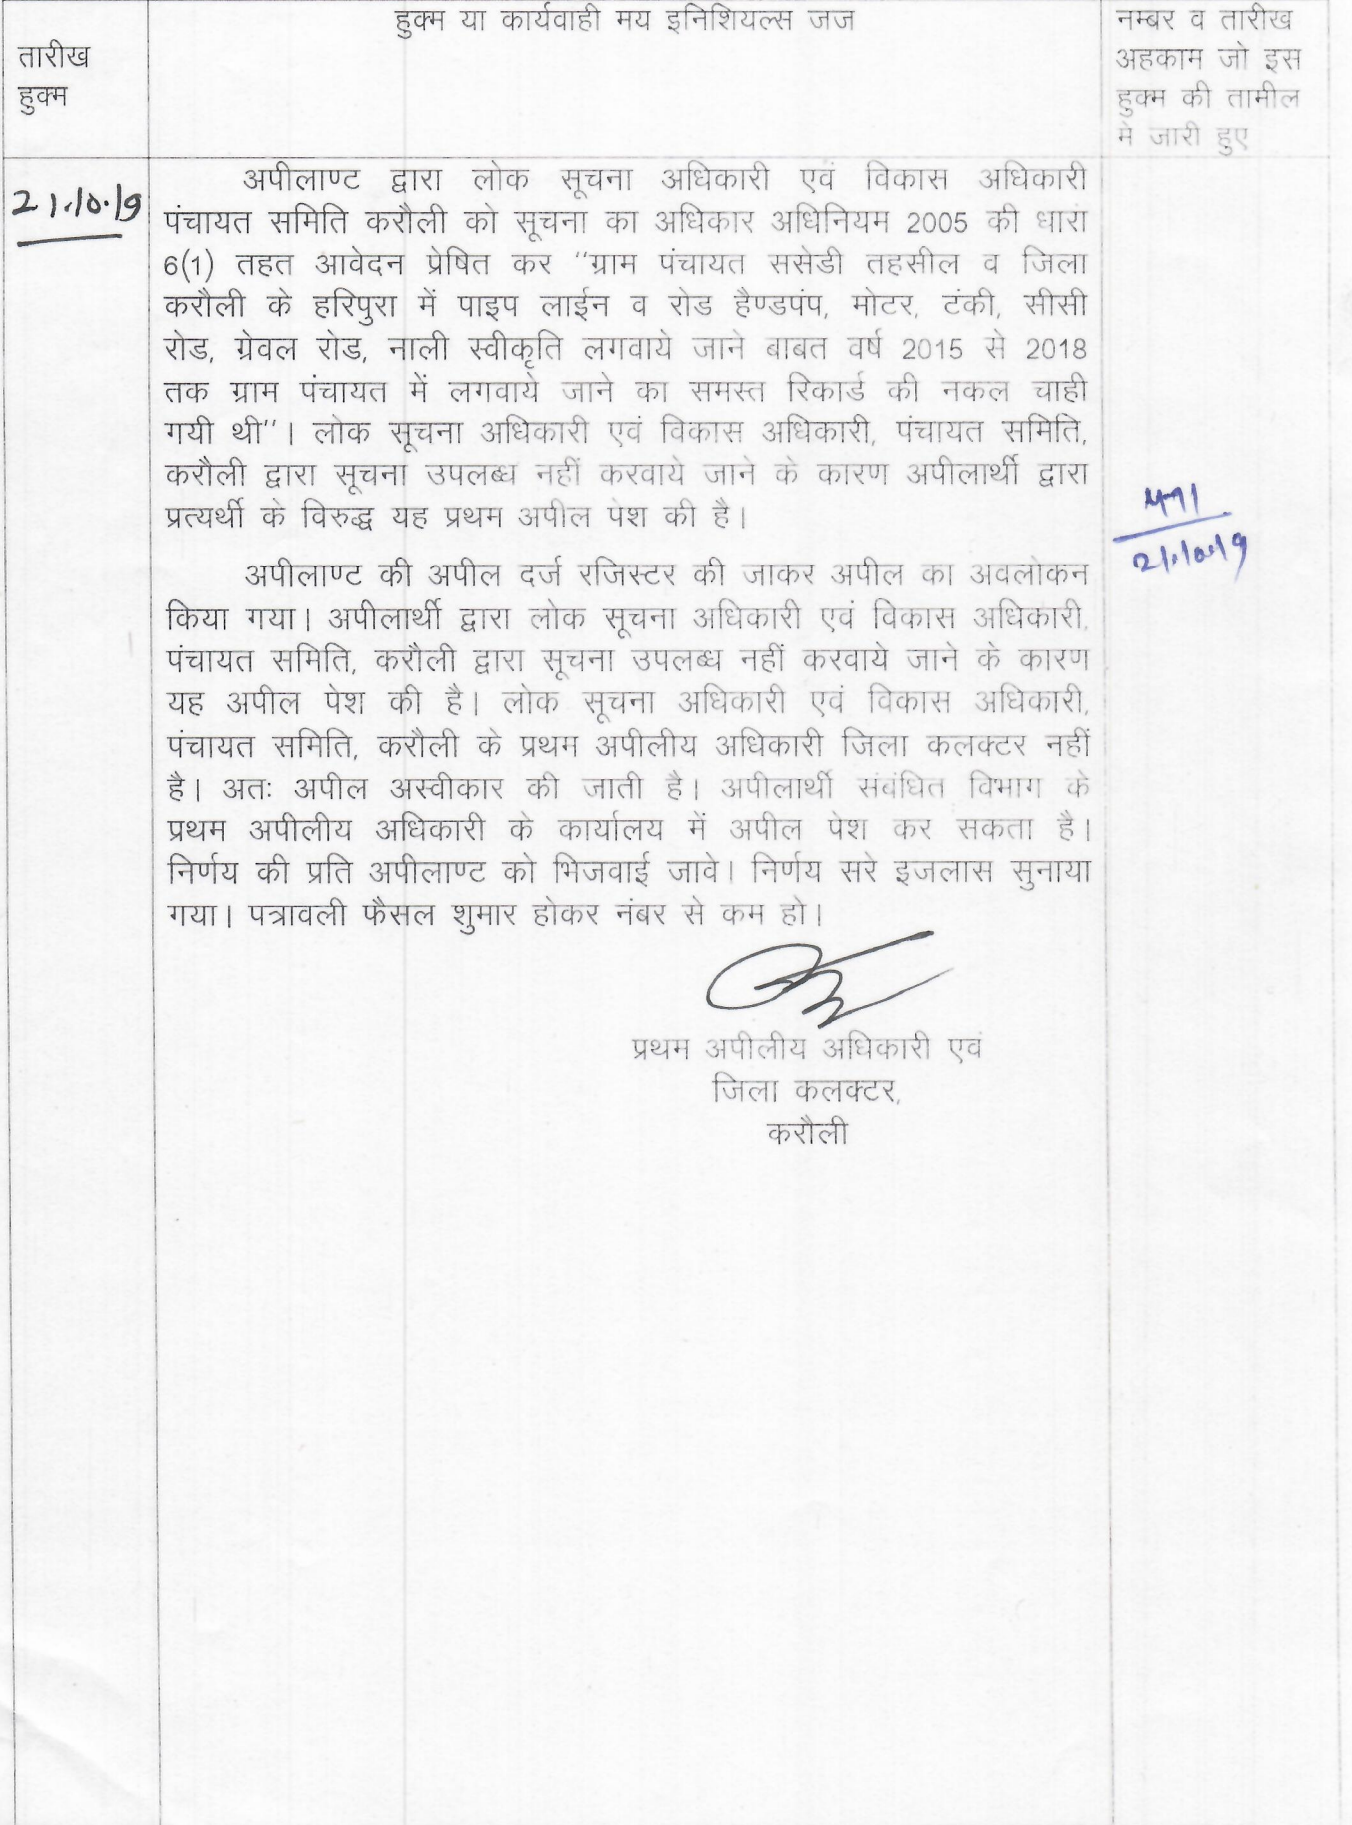 तारीख
हुक्म
हुक्म या कार्यवाही मय इनिशियल्स जज
नम्बर व तारीख
अहकाम जो इस
हुक्म की तामील
मे जारी हुए
21.10.19
अपीलाण्ट द्वारा लोक सूचना अधिकारी एवं विकास अधिकारी
पंचायत समिति करौली को सूचना का अधिकार अधिनियम 2005 की धारा
6(1) तहत आवेदन प्रेषित कर ‘‘ग्राम पंचायत ससेडी तहसील व जिला
करौली के हरिपुरा में पाइप लाईन व रोड हैण्डपंप, मोटर, टंकी, सीसी
रोड, ग्रेवल रोड, नाली स्वीकृति लगवाये जाने बाबत वर्ष 2015 से 2018
तक ग्राम पंचायत में लगवाये जाने का समस्त रिकार्ड की नकल चाही
गयी थी’’। लोक सूचना अधिकारी एवं विकास अधिकारी, पंचायत समिति,
करौली द्वारा सूचना उपलब्ध नहीं करवाये जाने के कारण अपीलार्थी द्वारा
प्रत्यर्थी के विरुद्ध यह प्रथम अपील पेश की है।
अपीलाण्ट की अपील दर्ज रजिस्टर की जाकर अपील का अवलोकन
किया गया। अपीलार्थी द्वारा लोक सूचना अधिकारी एवं विकास अधिकारी,
पंचायत समिति, करौली द्वारा सूचना उपलब्ध नहीं करवाये जाने के कारण
यह अपील पेश की है। लोक सूचना अधिकारी एवं विकास अधिकारी,
पंचायत समिति, करौली के प्रथम अपीलीय अधिकारी जिला कलक्टर नहीं
है। अतः अपील अस्वीकार की जाती है। अपीलार्थी संबंधित विभाग के
प्रथम अपीलीय अधिकारी के कार्यालय में अपील पेश कर सकता है।
निर्णय की प्रति अपीलाण्ट को भिजवाई जावे। निर्णय सरे इजलास सुनाया
गया। पत्रावली फैसल शुमार होकर नंबर से कम हो।
21.10.19
प्रथम अपीलीय अधिकारी एवं
जिला कलक्टर,
करौली